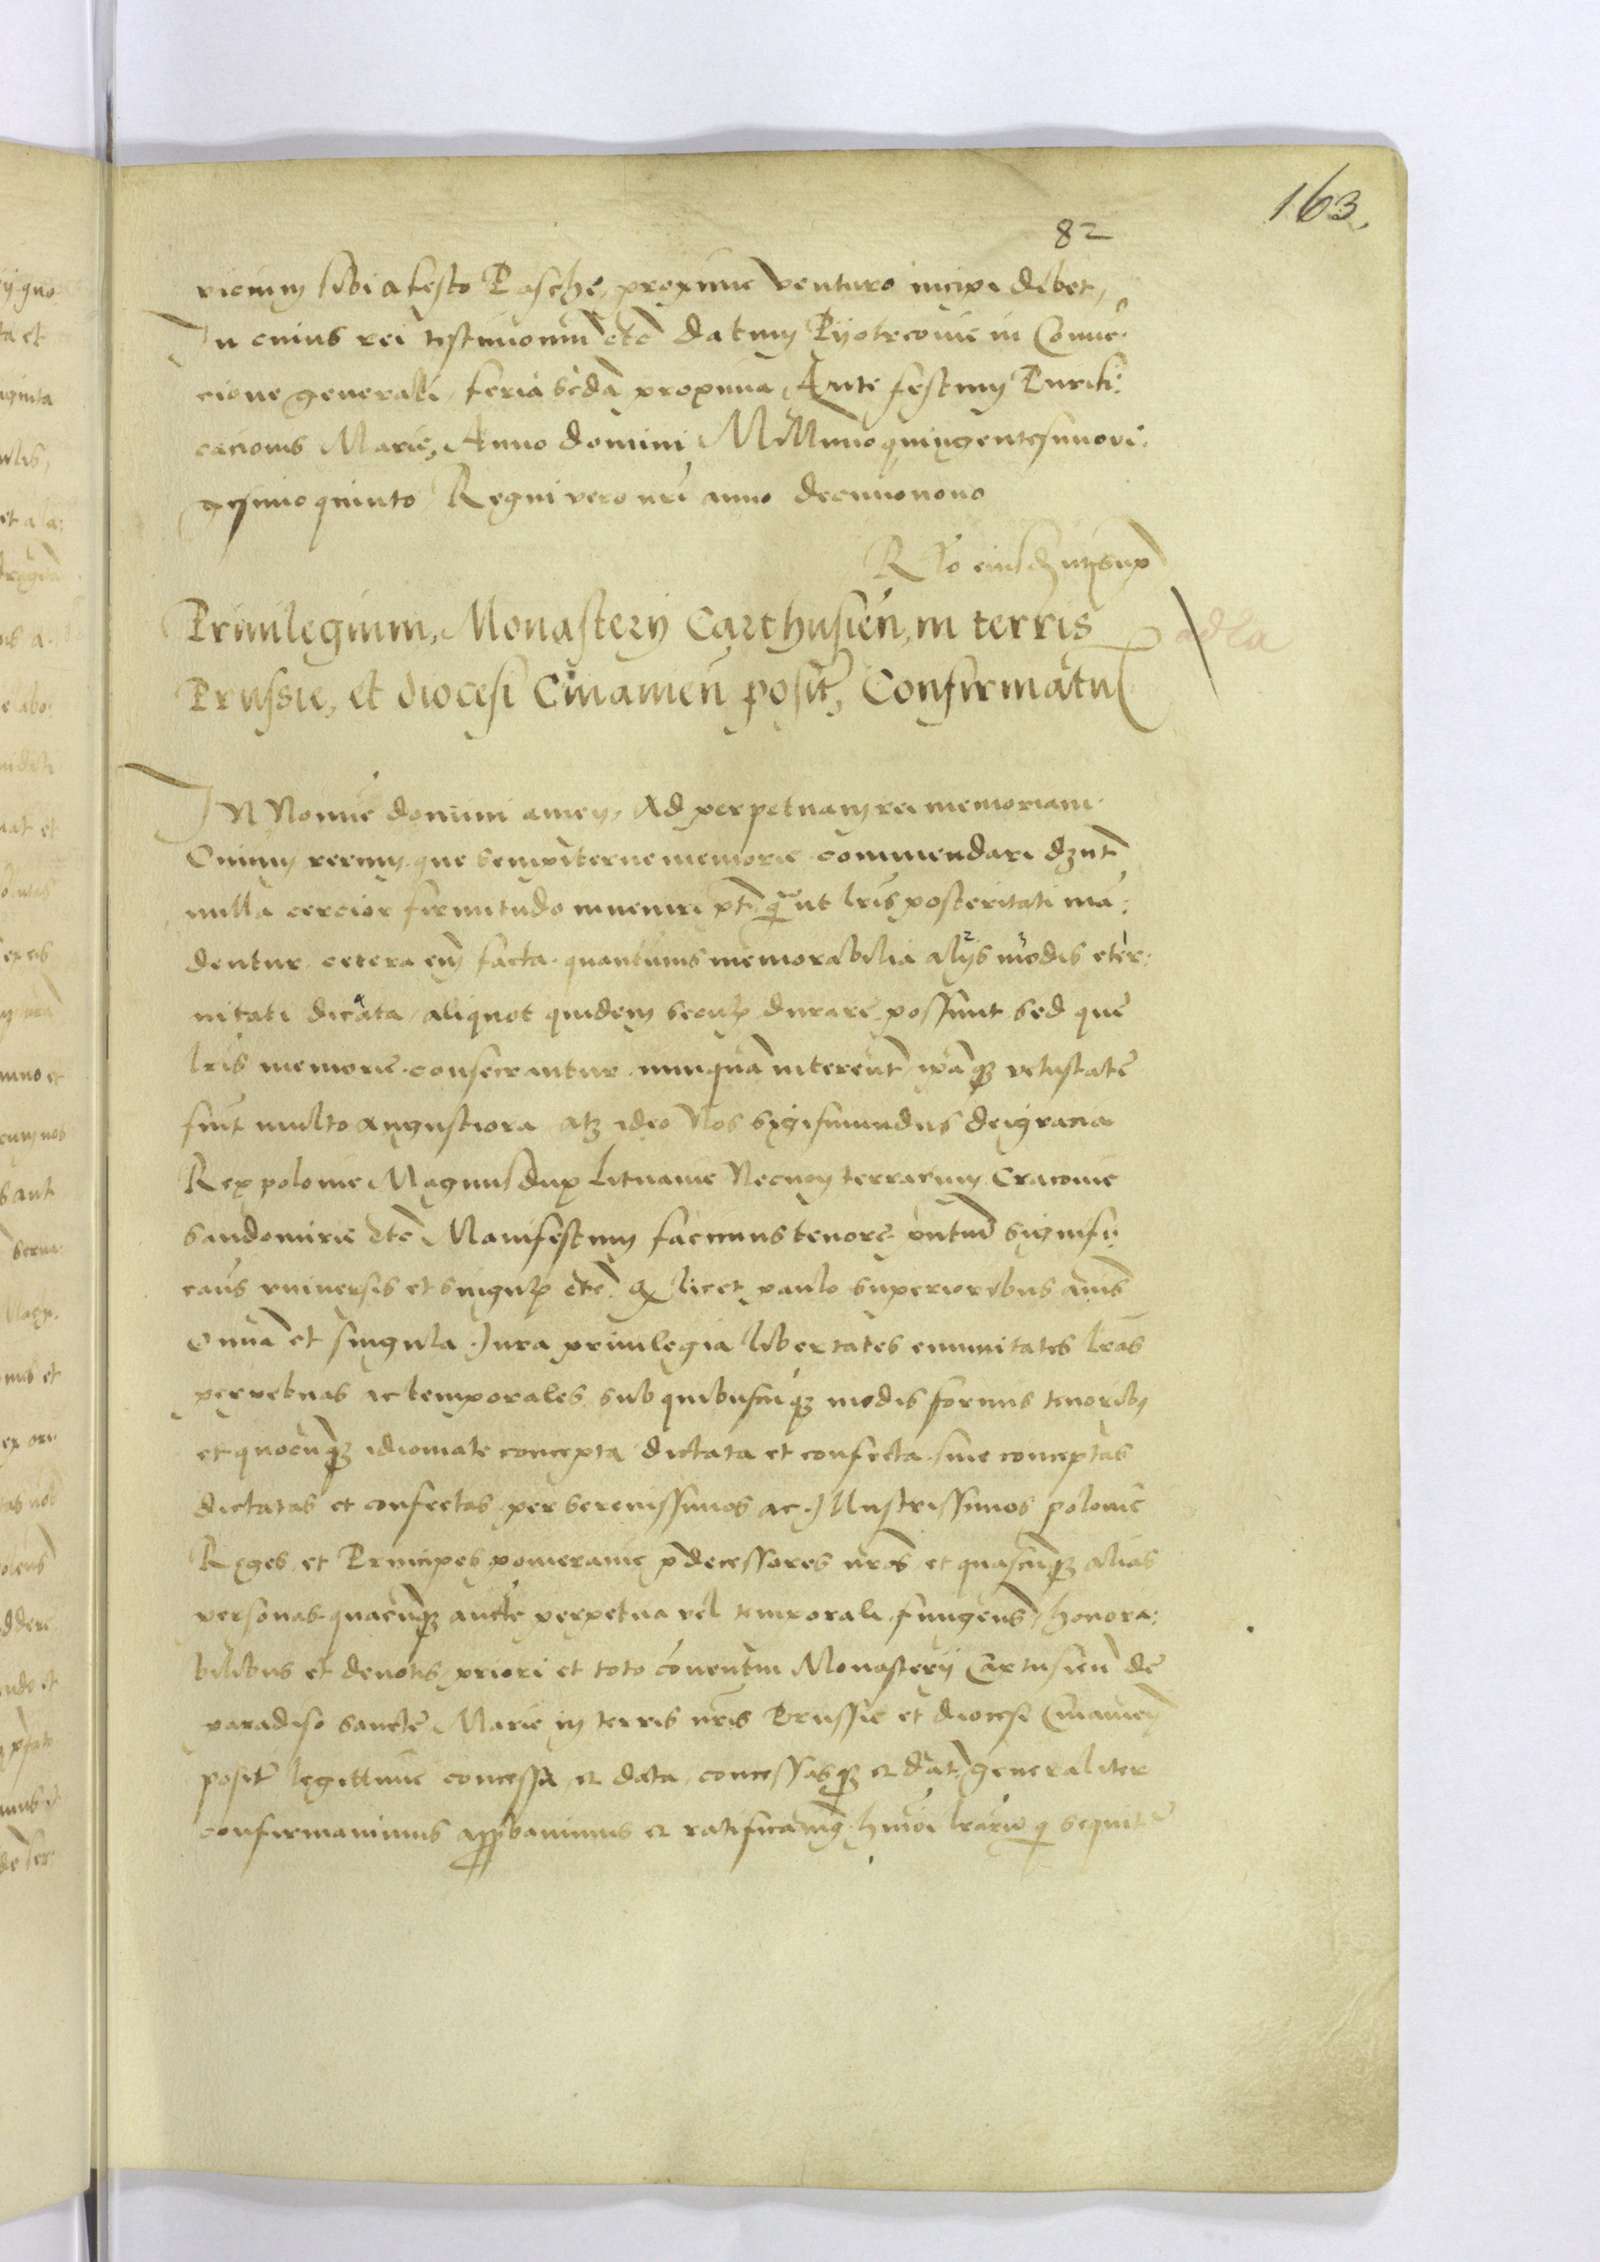 163.
82
ricium sibi a festo Pasche, proxime venturo incipi debet,
In cuius rei testimonium etc Datum Pyotrcovie in Conue:
cione generali, feria scda proxima Ante festum Purifi:
cacionis Marie, Anno domini Millimo quingentesimo vi:
gesimo quinto Regni vero nri anno decimonono
Priuilegium, Monasterij Carthusien, in terris
ad la
Prussie, et diocesi Cuiamen posit, Confirmatur
IN Nomie domini amen, Ad perpetuam rei memoriam
Cunm rerum que sempiterne memorie commendari dznt
nulla cercior firmitudo inueniri pt q ut lris posteritati man:
dentur cetera em facta quantumuis memorabilia alijs modis eter:
nitati dicata, aliquot quidem secul durare possunt sed que
lris memorie consecrantur nunquam intereunt ipaq vetustate
fiut multo angustiora atq ideo Nos Sigismundus dei gracia
Rex polonie Magnus dux Lituanie Necnon terrarum Cracovie
Sandomirie etc Manifestum facimus tenore pntium signifi:
cans vniuersis et singul etc. Q licet paulo superioribus annis
omnia et singula Jura priuilegia libertates emunitates lras
perpetuas ac temporales sub quibuscuq modis formis tenoribus
et quocuq idiomate concepta dictata et confecta siue conceptas
dictatas et confectas per Serenissimos ac Illustrissimos polonie
Reges et Principes pomeranie pdecessores nros et quascuq alias
personas quacuq aucte perpetua vel temporali fungens, honora:
bilibus et deuotis priori et toto conuentui Monasterij Cartusien de
paradiso Sancte Marie in terris nris Prussie et diocesi Cuiamen
posit legittime concessa et data, concessasq et dat generaliter
confirmauimus approbauimus et ratificauimus hmoi lrarum q sequit